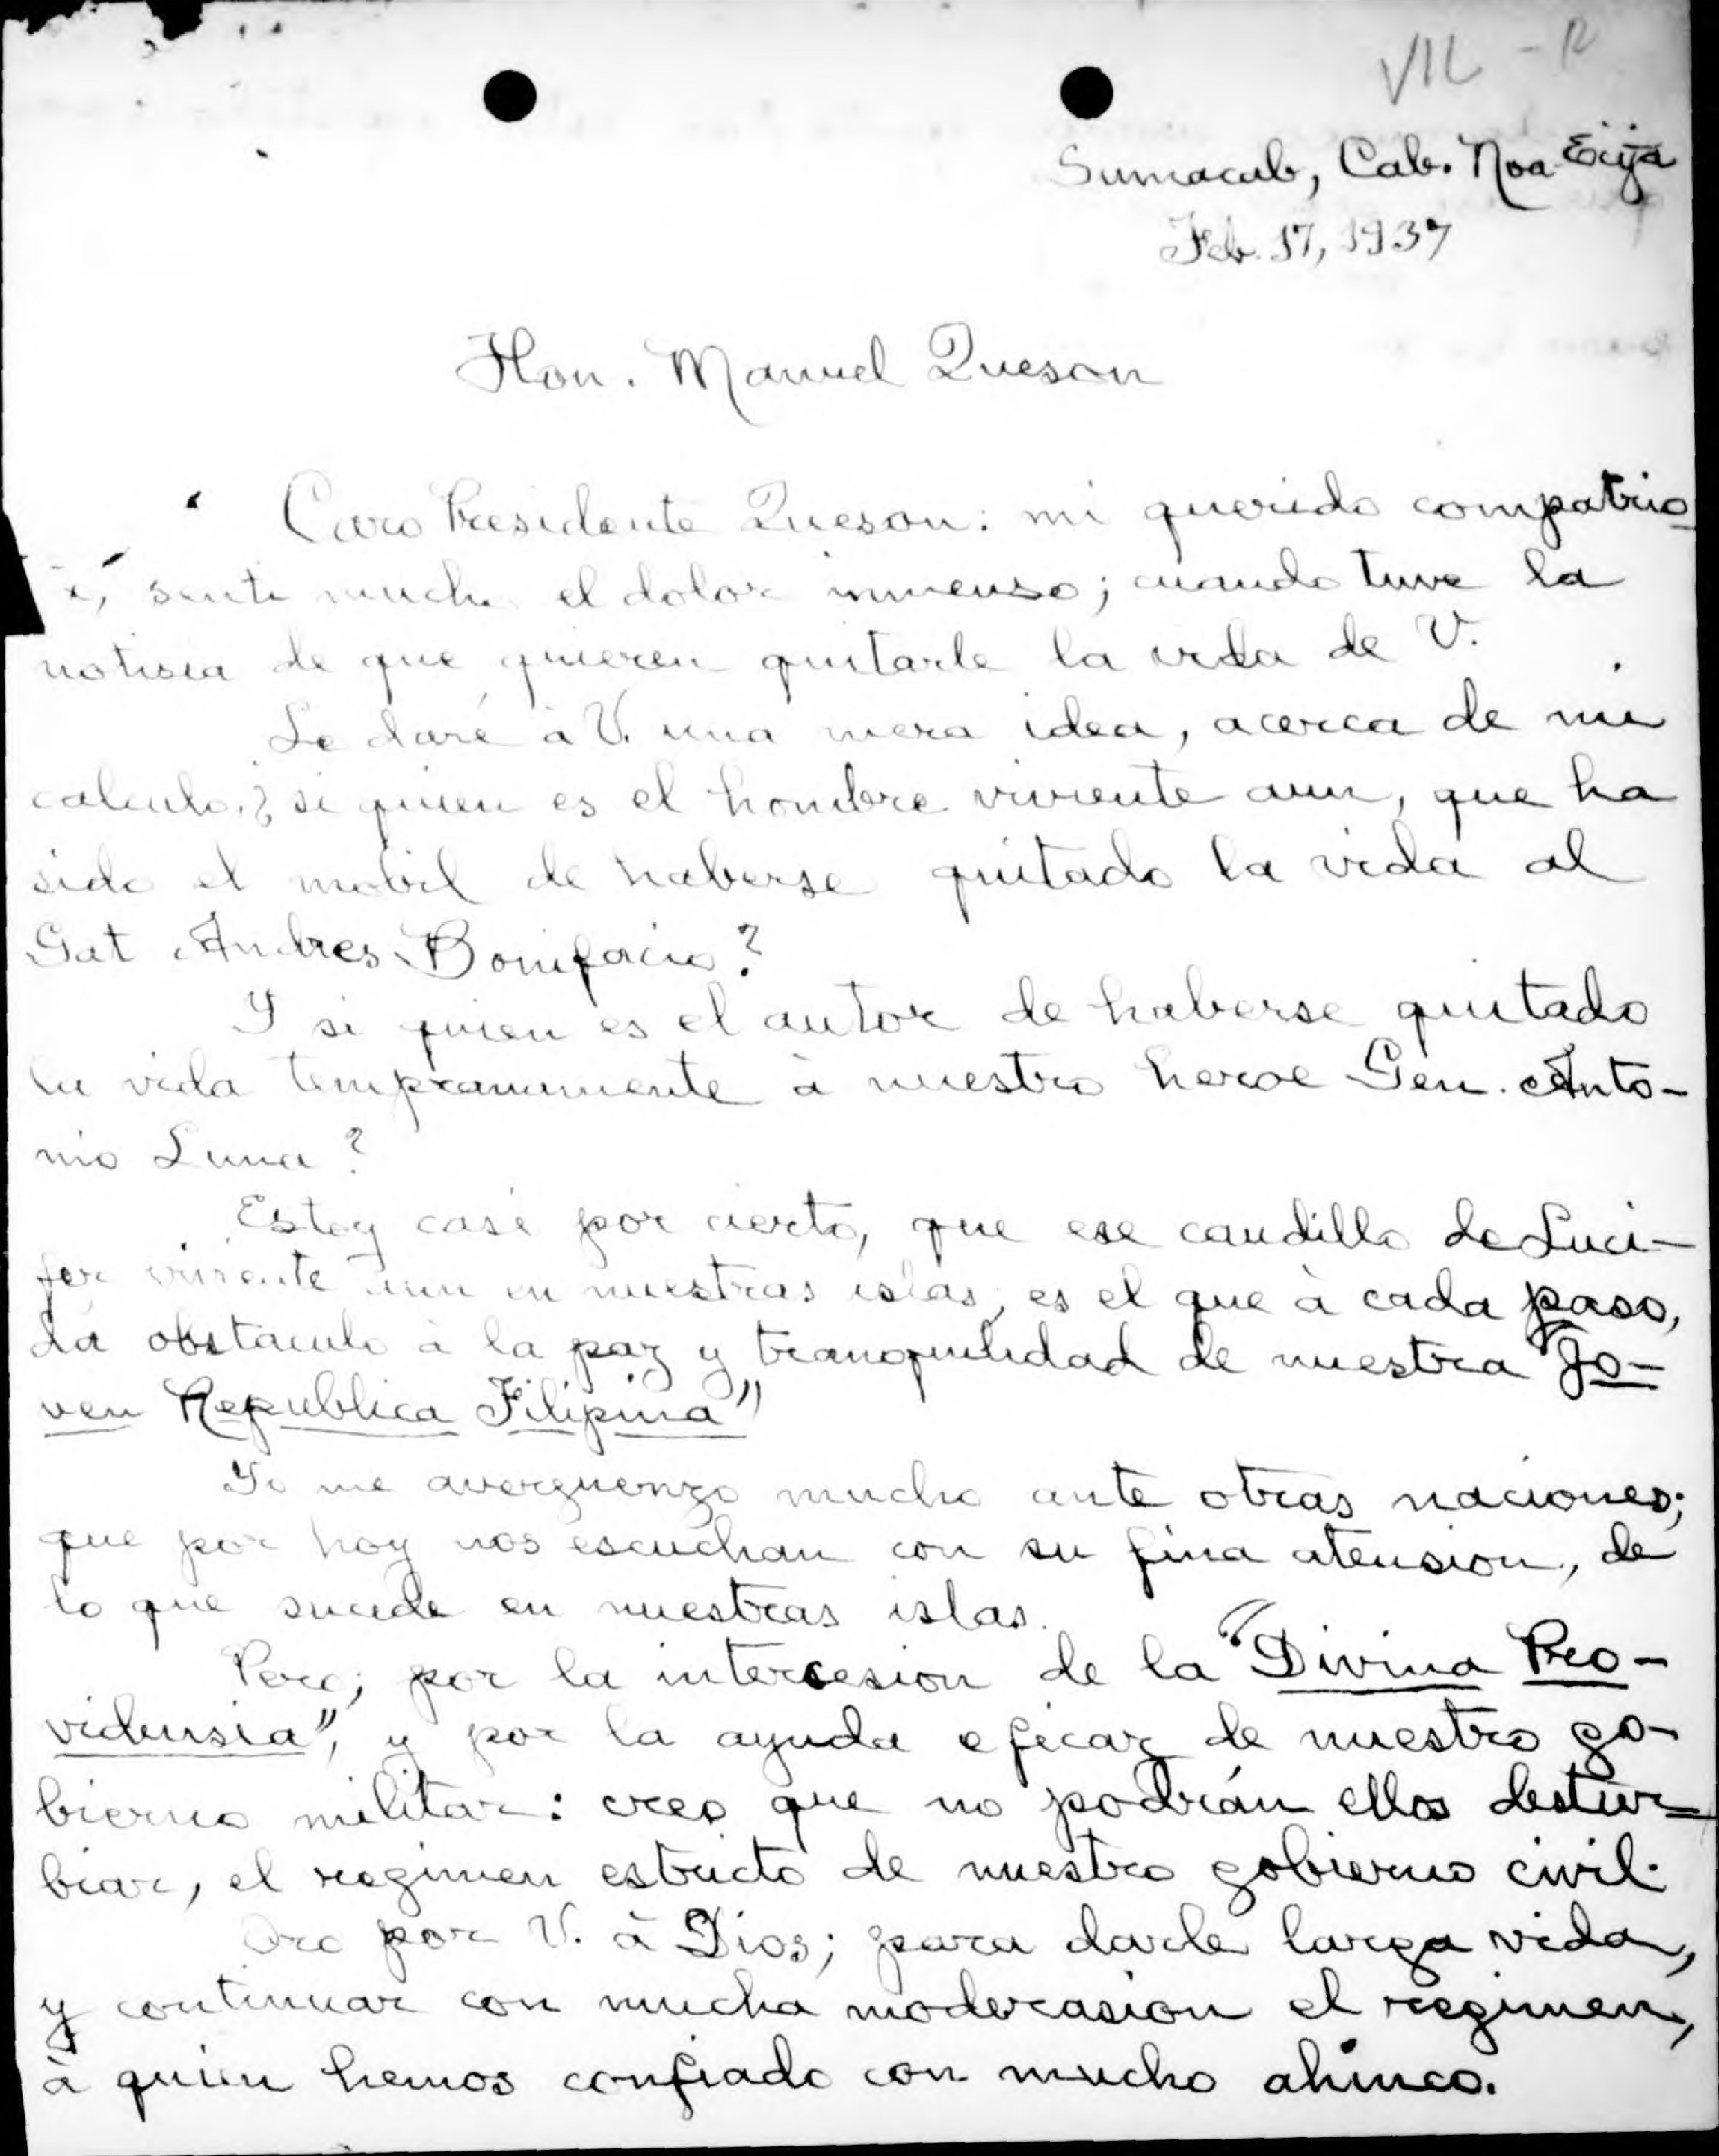 VII - R
Sumacab, Cab. Nva Ecija
Feb. 17, 1937
Hon. Manuel Queson
Caro Presidente Queson: mi querido compatrio
senti mucho el dolor inmenso; cuando tuve la
notisia de que quieren quitarle la vida de V.
Le daré à V. una mera idea, acerca de mi
calculo.¿ si quien es el hombre viviente aun, que ha
sido el mobil de haberse quitado la vida al
Gat Andres Bonifacio?
Y si quien es el autor de haberse quitado
la vida tempranamente à nuestro heroe Gen. Anto-
nio Luna?
Estoy casi por cierto, que ese caudillo de Luci-
fer viviente aun en nuestras islas, es el que à cada paso,
da obstaculo à la paz y tranquilidad de nuestra "Jo-
ven Republica Filipina"
Yo me averguenzo mucho ante otras naciones;
que por hoy nos escuchan con su fina atension, de
lo que sucede en nuestras islas.
Pero; por la intercesion de la "Divina Pro-
vidensia", y por la ayuda eficaz de nuestro go-
bierno militar: creo que no podrán ellos destur-
biar, el regimen estricto de nuestro gobierno civil.
Oro por V. à Dios; para darle larga vida,
y continuar con mucha moderasion el regimen,
à quien hemos confiado con mucho ahinco.